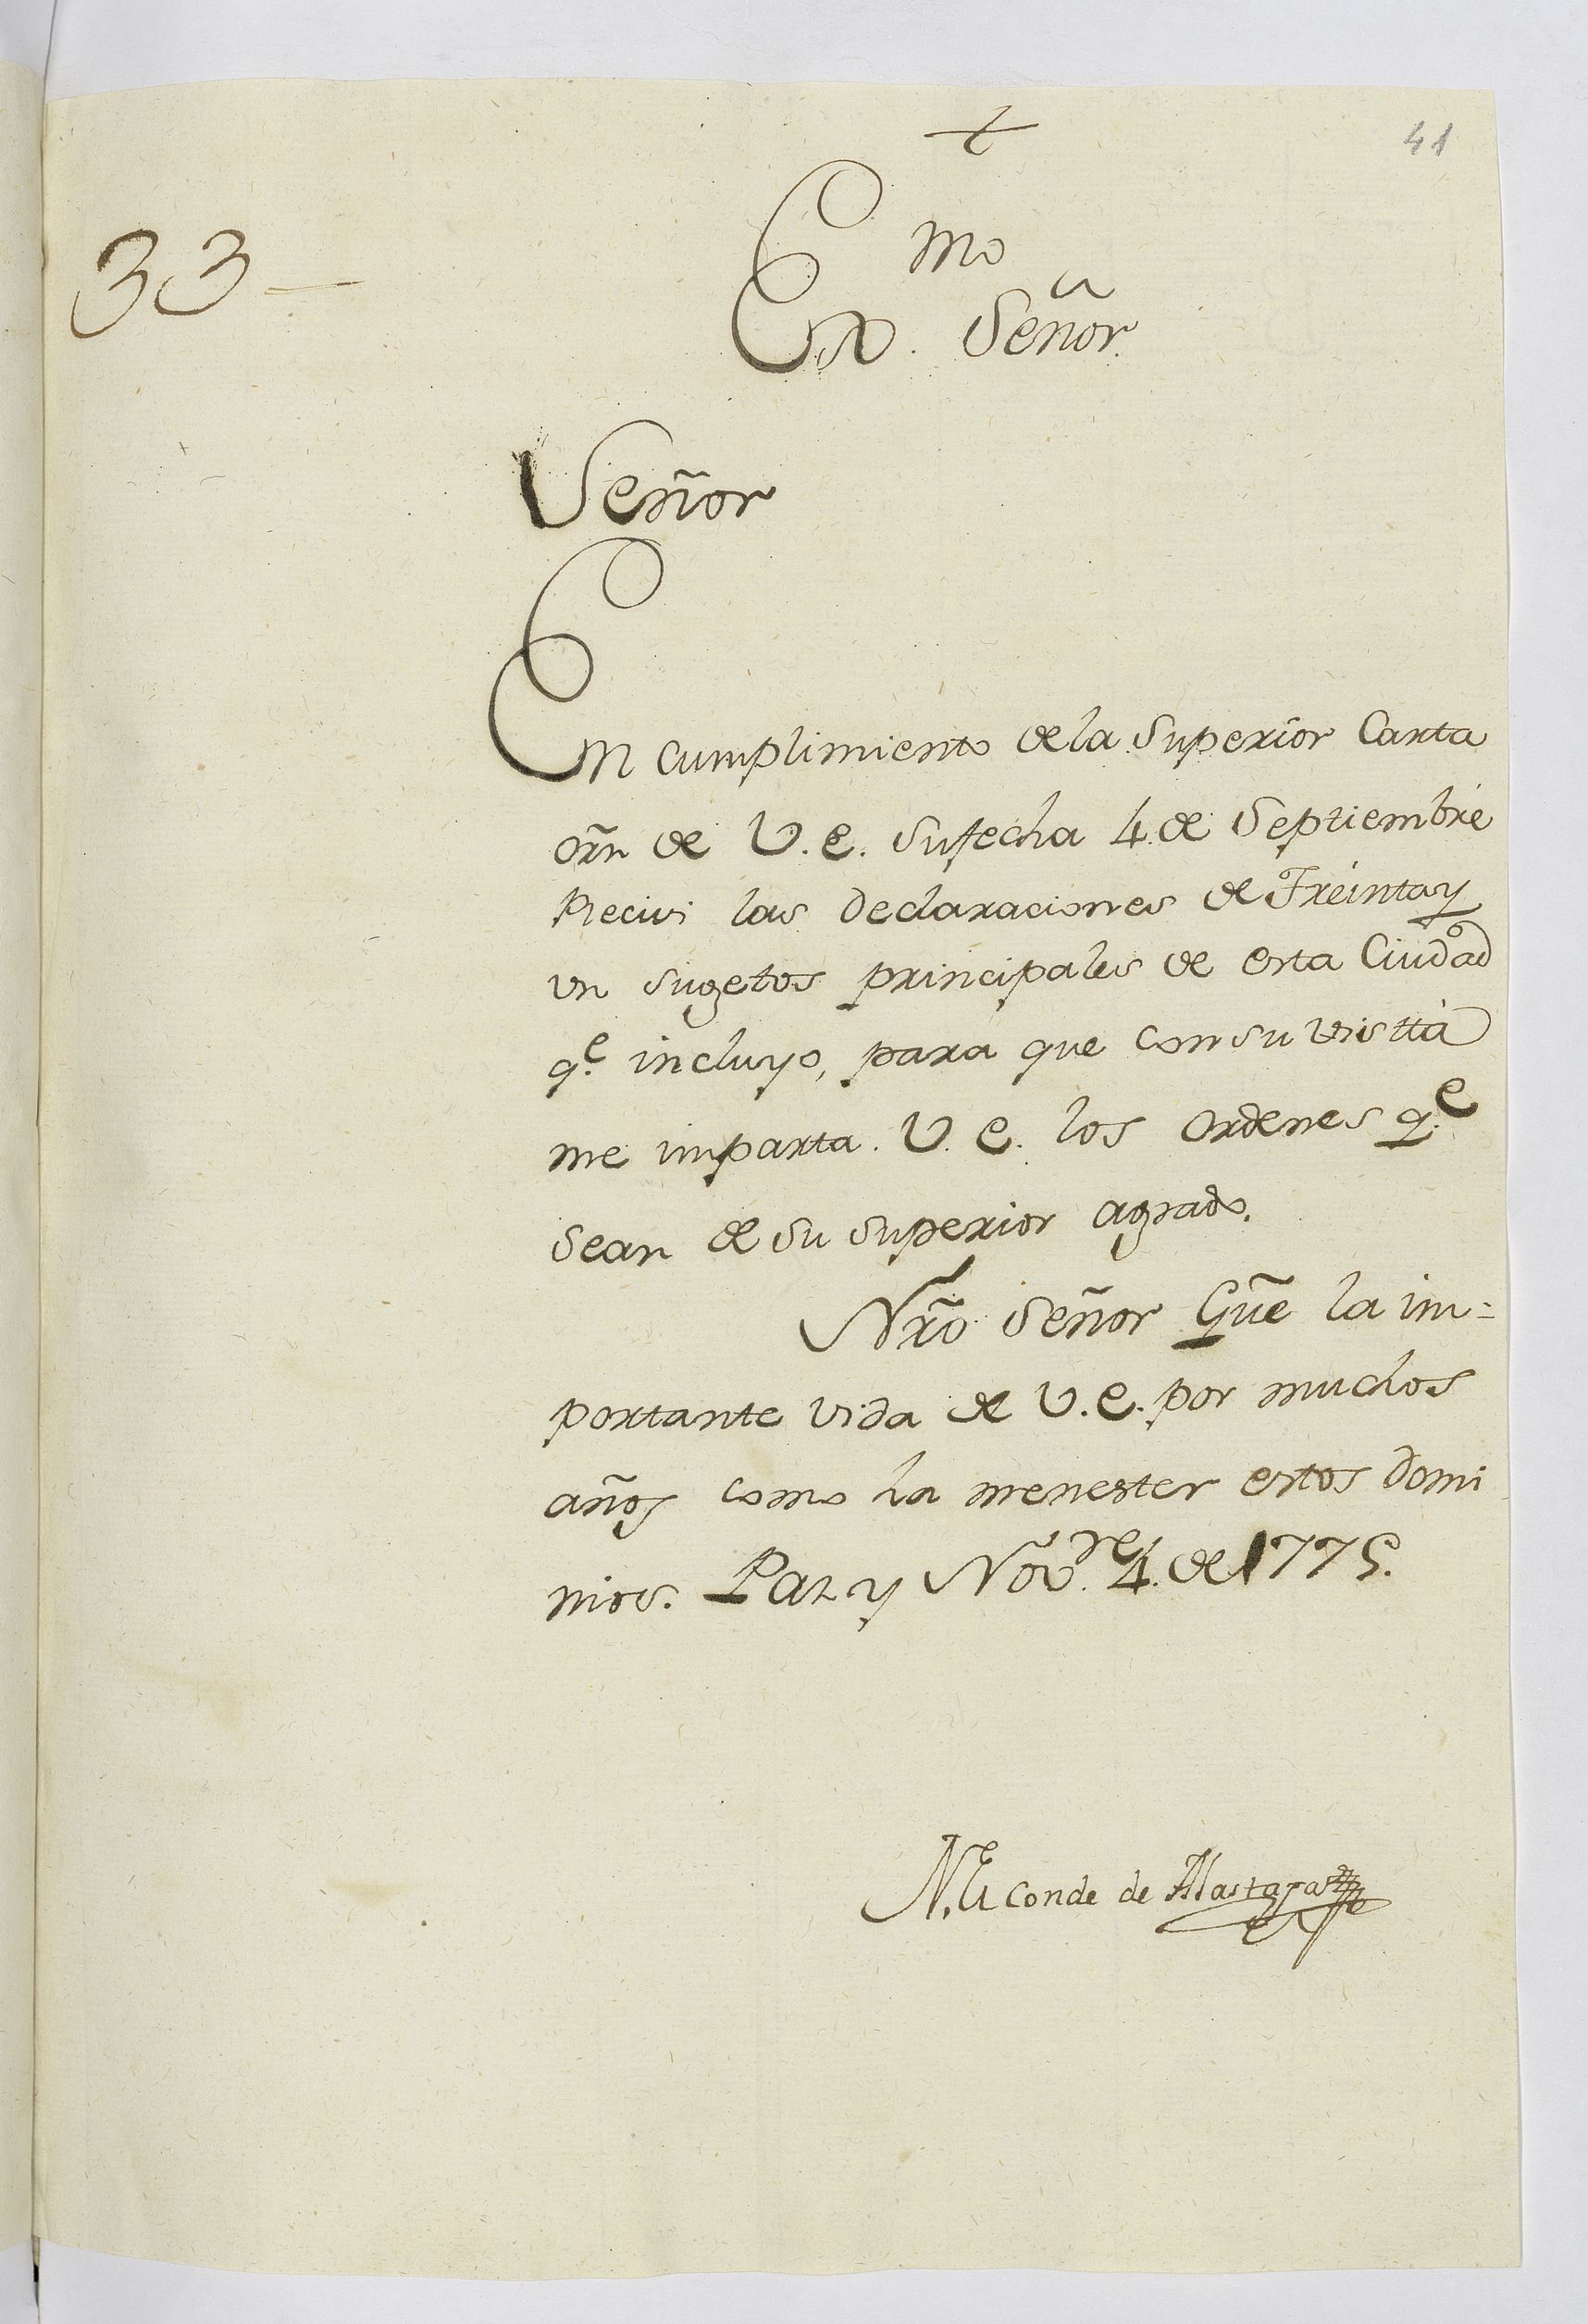 41
33—
Exmo. Señor.
Señor
En cumplimiento de la Superior Carta
orñ de V.E. su fecha 4. de Septiembre
Recivi las declaraciones de Treinta y
un sugetos principales de esta Ciudad
qe. incluyo, para que con su vistta
me imparta. V.E. los ordenes qe.
sean de su superior agrado.
Nrõ Señor Güe la im=
portante vida de V.E. por muchos
años como ha menester estos domi
nios. Paz y Novre. 4. de 1775.
Conde de